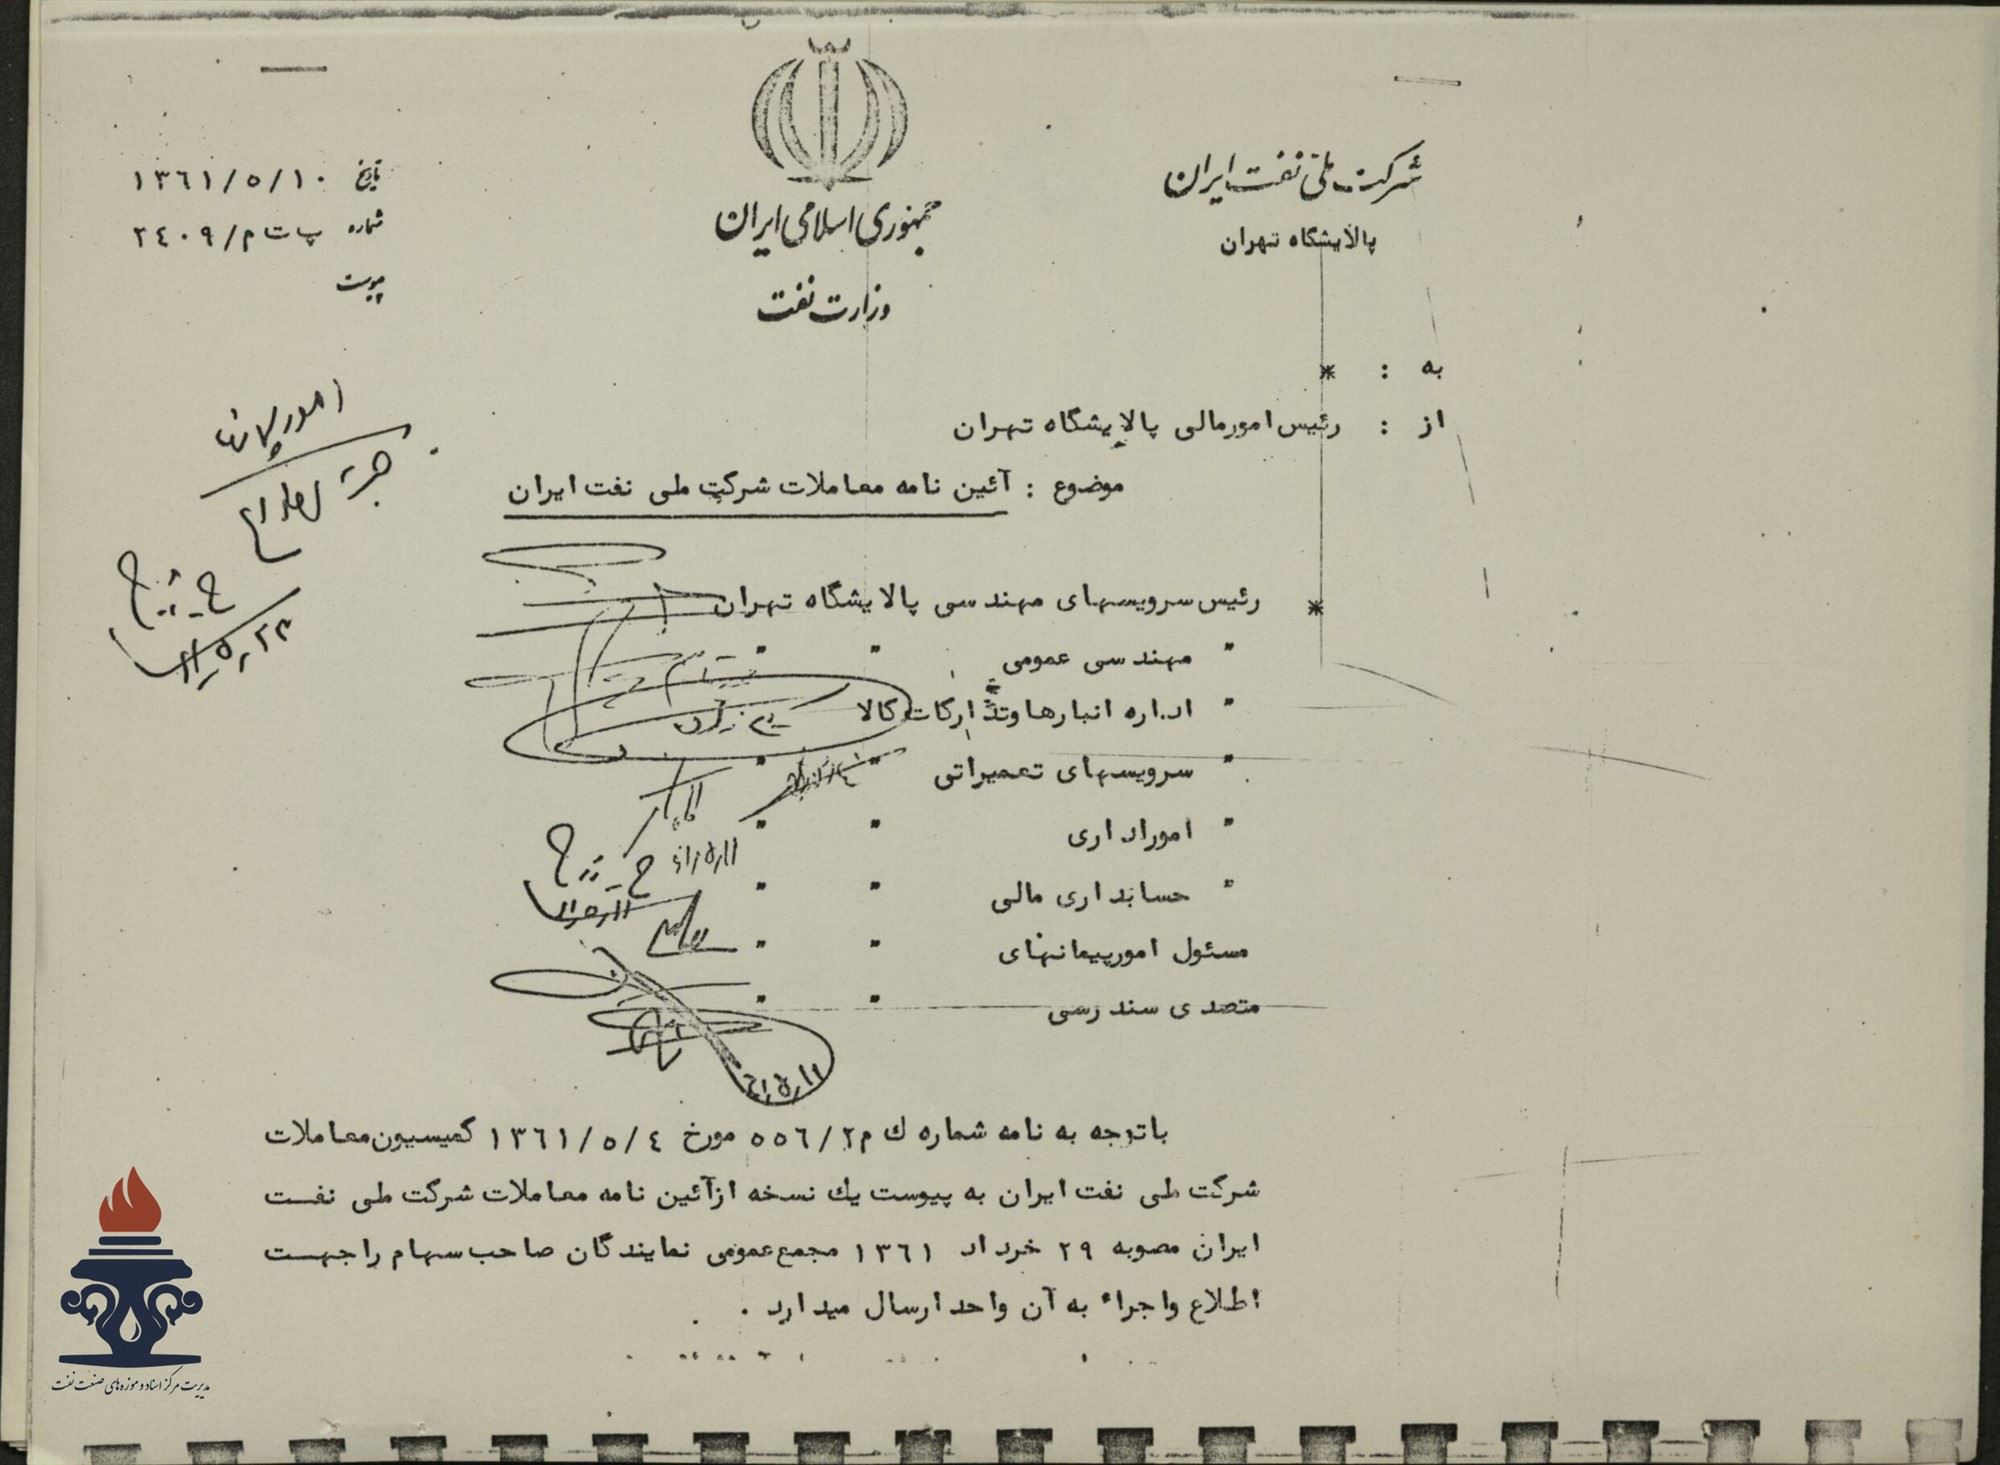 شرکت ملی نفت ایران
پالایشگاه تهران
جمهوری اسلامی ایران
وزارت نفت
تاریخ ۱۳۶۱/۵/۱۰
شماره پ ت م/۲۴۰۹
پیوست
به : *
از : رئیس امورمالی پالایشگاه تهران
موضوع : آئین نامه معاملات شرکت ملی نفت ایران
امور پیمانها
جهت اطلاع
* رئیس سرویسهای مهندسی پالایشگاه تهران
" مهندسی عمومی " "
" اداره انبارها و تدارکات کالا
" سرویسهای تعمیراتی " "
" امور اداری " "
" حسابداری مالی " "
مسئول امور پیمانهای " "
متصدی سندرسی " "
باتوجه به نامه شماره ك م۵۵۶/۲ مورخ ۱۳۶۱/۵/۴ کمیسیون معاملات
شرکت ملی نفت ایران به پیوست یك نسخه از آئین نامه معاملات شرکت ملی نفت
ایران مصوبه ۲۹ خرداد ۱۳۶۱ مجمع عمومی نمایندگان صاحب سهام را جهت
اطلاع واجراء به آن واحد ارسال میدارد .
مدیریت مرکز اسناد و موزه‌های صنعت نفت